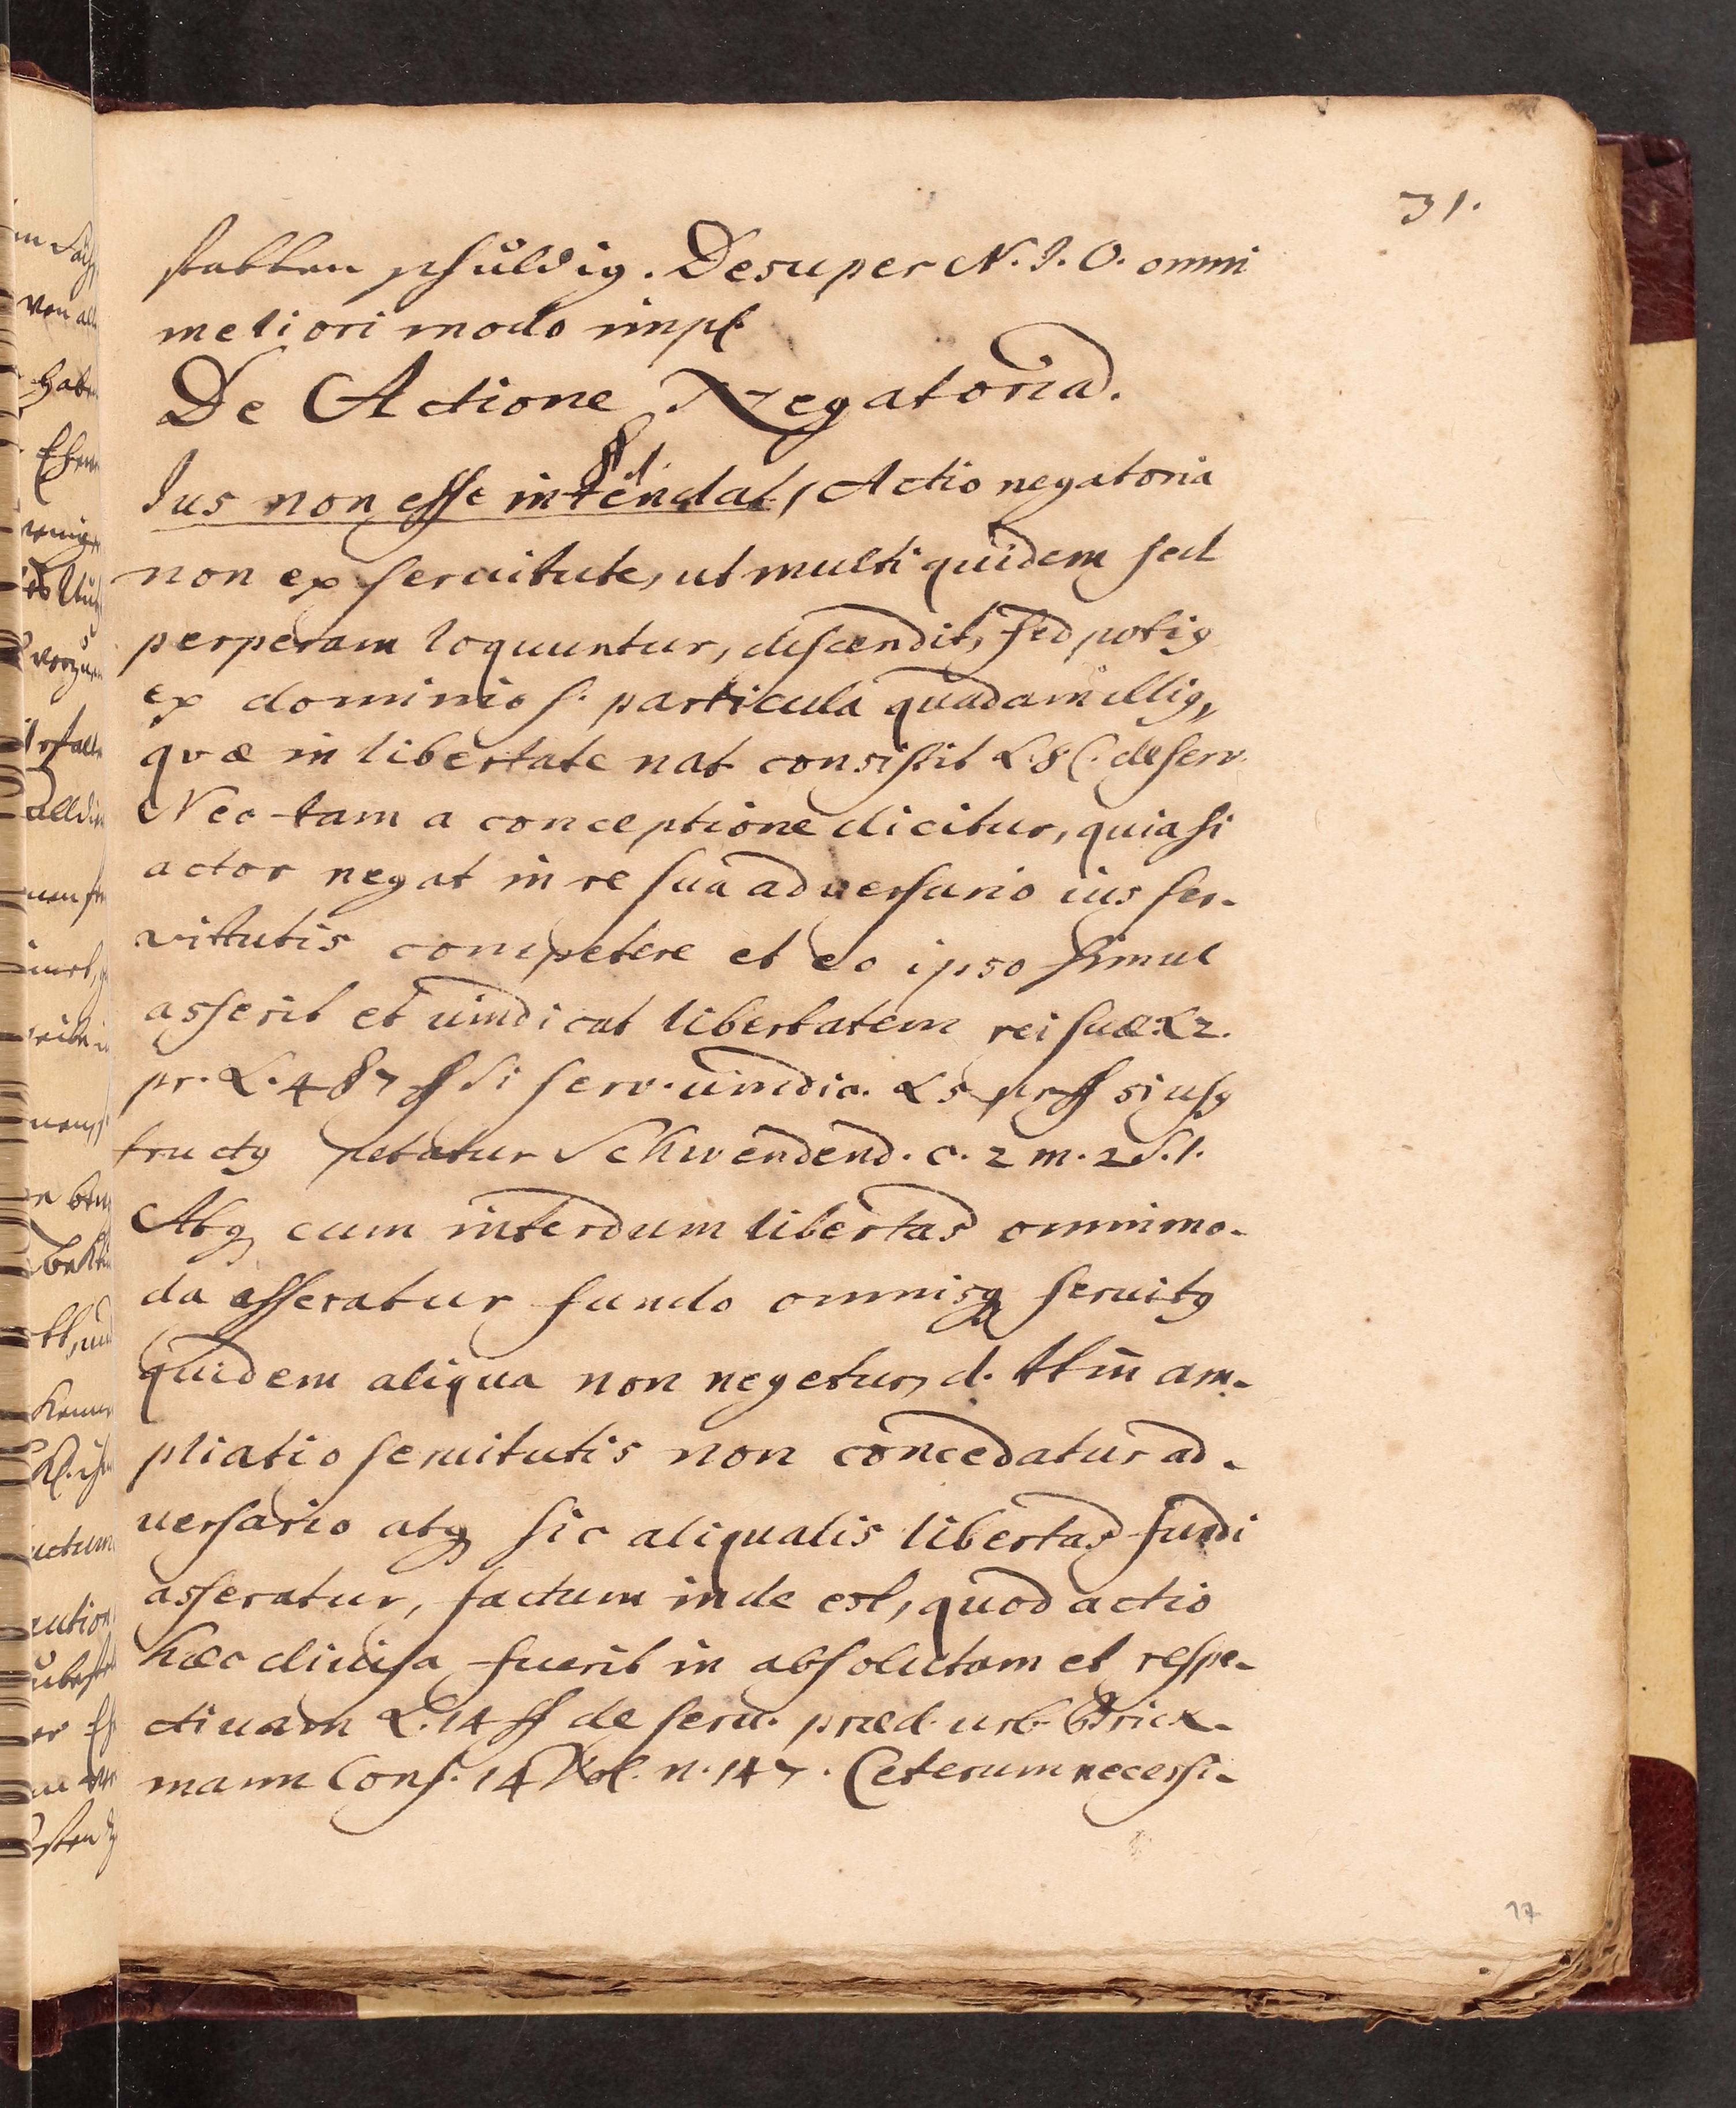 31.
statten schuldig. Desuper N. I. O. omni
meliori modo impl.
De Actione Negatoria.
§ 1.
Ius non esse intendat, Actio negatoria
non ex seruitute, ut multi quidem sed
perperam loquuntur, descendit, sed potig
ex dominio s. particula quadam illig,
qvæ in libertate nat consistit L. 8 C. de serv.
Nec tam a conceptione dicitur, quia si
actor negat in re sua aduersario ius ser-
vittutis competere et eo ipso simul
asserit et uindicat libertatem rei suæ. L 2.
pr. L. 4 § 7 ff si serv. uindic. L 5 pr ff si usg
fructg petatur Schwendend. c. 2 m. 2 S. 1.
Atq cum interdum libertas omnimo-
da asseratur fundo omnisq seruitg
quidem aliqua non negetur, d. ttm am-
pliatio seruitutis non concedatur ad-
uersario atq sic aliqualis libertas fundi
asseratur, factum inde est, quod actio
hæc diuisa fuerit in absolutam et respe-
ctiuam L. 14 ff de seru. præd. urb. Brick-
mann Cons. 14 Vol. n. 147. Ceterum necessi-
17